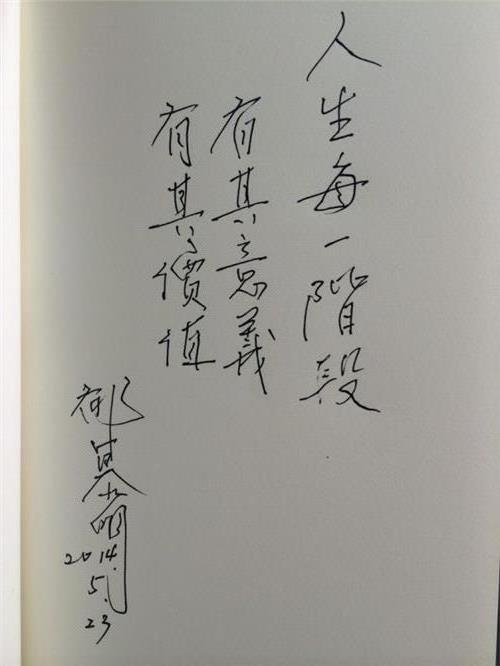 人生每一階段
有其意義
有其價值
郝慕明
2014.
5.
23